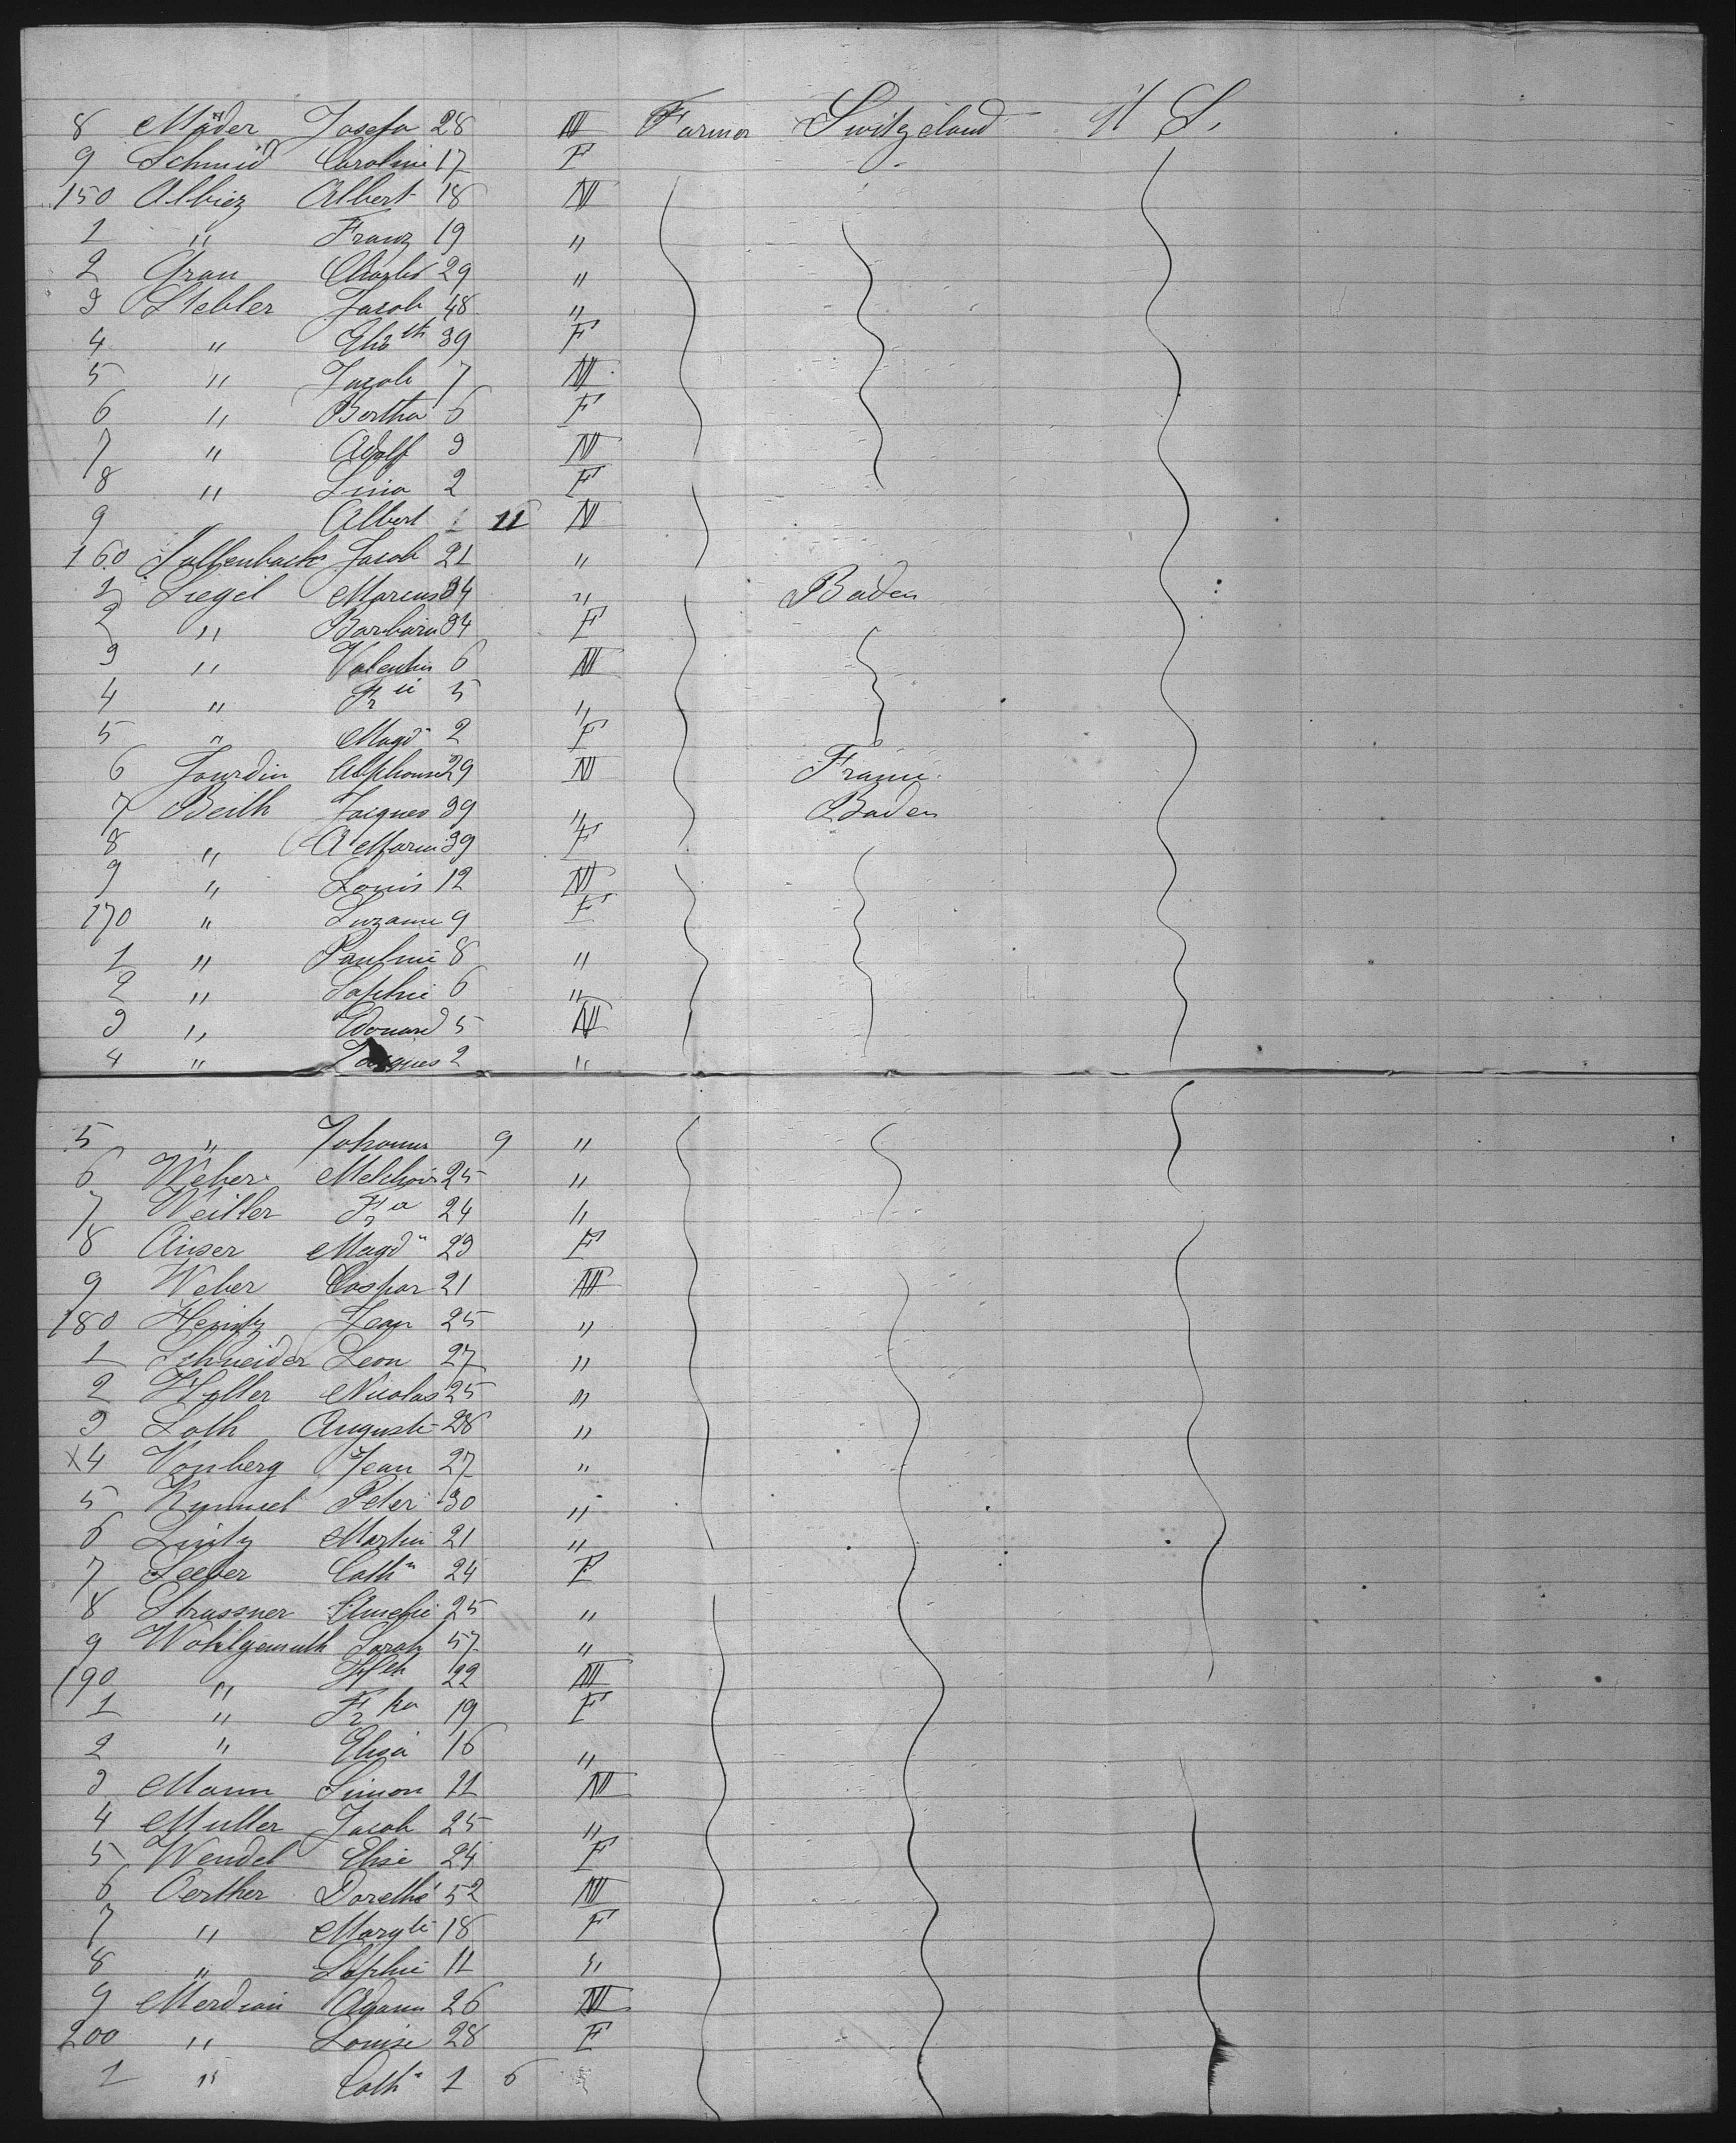 8 Mäder Josefa 28 M Farmer Switzeland U S.
9 Schmid Caroline 17 F
150 Albiez Albert 18 M
1 " Franz 19 "
2 Grau Charles 29 "
3 Stebler Jacob 48 "
4 " Elisth 39 F
5 " Jacob 7 M
6 " Bertha 6 F
7 " Adolf 3 M
8 " Lina 2 F
9 " Albert 11 M
160 Jacob 21 "
1 Siegel Marcus 34 " Baden
2 " Barbara 34 F
3 " Valentin 6 M
4 " 5 "
5 " Magd" 2 F
6 Jourdin Alphonse 29 M France
7 Beith Jacques 39 " Baden
8 " A Marie 39 F
9 " Louis 12 M
170 " Suzanne 9 F
1 " Pauline 8 "
2 " Sophie 6 "
3 " Edouard 5 M
4 " Jacques 2 "
5 " Johann 9 "
6 Weber Melchior 25 "
7 Weiller 24 "
8 Anser Magd" 23 F
9 Weber Caspar 21 M
180 Heintz Jean 25 "
1 Schneider Leon 27 "
2 Holler Nicolas 25 "
3 Loth Auguste 28 "
X4 Vonberg Jean 27 "
5 Kummel Peter 30 "
6 Lintz Martin 21 "
7 Seeber Cath" 24 F
8 Strassner Amelie 25 "
9 Wohlgemuth Sarah 57 "
190 " 22 M
1 " Frka 19 F
2 " Elisa 16 "
3 Mann Simon 21 M
4 Muller Jacob 25 "
5 Wendel Elise 24 F
6 Oerther Dorethé 52 M
7 " Margte 18 F
8 " Sophie 11 "
9 Merdian Adam 26 M
200 " Louise 28 F
1 " Cath" 1 6